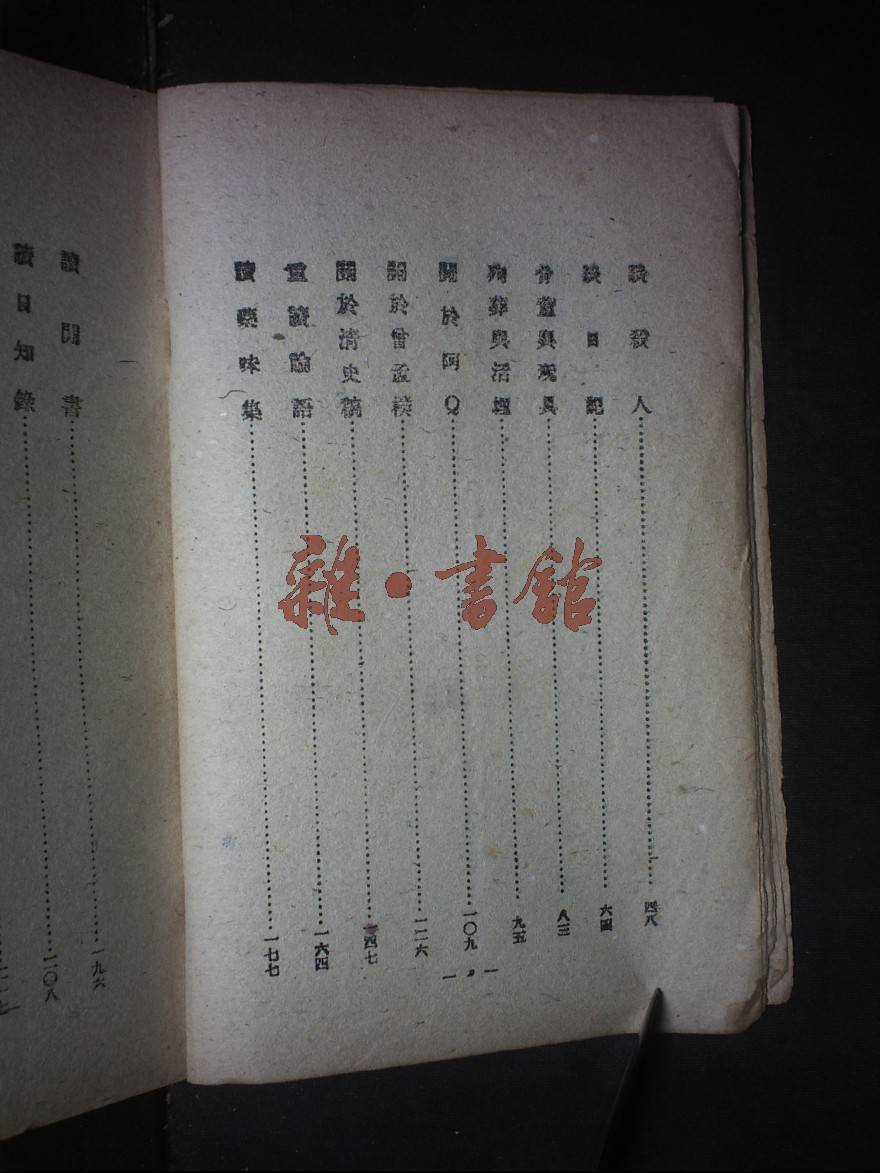 談殺人……四八
談日記……六四
骨董與玩具……八三
殉葬與活埋……九五
關於阿Q……一〇九
關於曾孟樸……一二六
關於清史稿……四七
重讀論語……一六四
讀藥味集……一七七
讀閒書……一九六
讀日知錄……二〇八
雜·書館